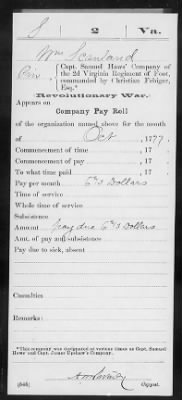 S 2 Va.
Wm Scanland
Capt. Samuel Hawes' Company of
the 2d Virginia Regiment of Foot,
commanded by Christian Febiger,
Esq.*
Revolutionary War.
Appears on
Company Pay Roll
of the organization named above for the month
of Oct , 1777.
Commencement of time , 17
Commencement of pay , 17
To what time paid , 17
Pay per month 6⅔ Dollars
Time of service
Whole time of service
Subsistence
Amount pay due 6⅔ Dollars
Amt. of pay and subsistence
Pay due to sick, absent
Casualties
Remarks:
*This company was designated at various times as Capt. Samuel
Hawes and Capt. James Upshaw's Company.
(545) Copyist.